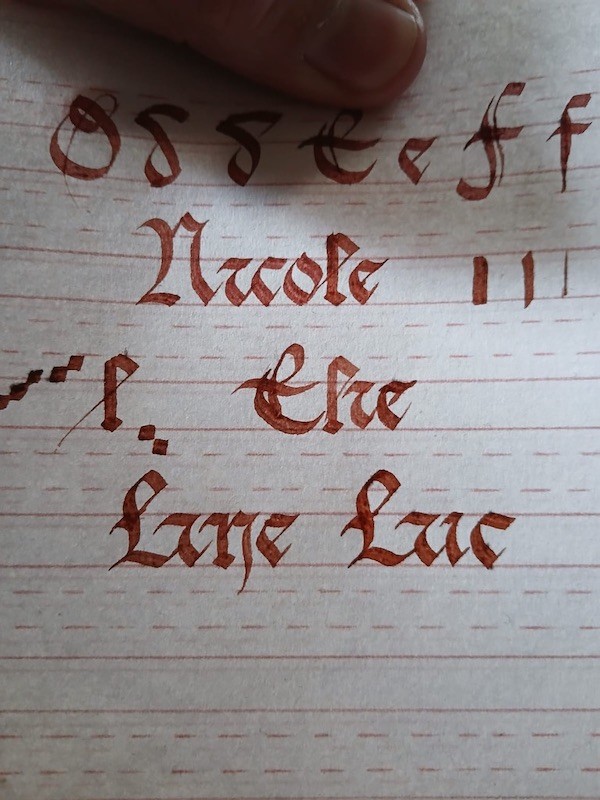 D d d E e F f
Nicole
l Elie
Line Luc